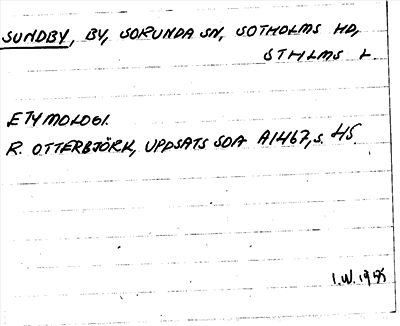 SUNDBY, BY, SORUNDA SN, SOTHOLMS HD,
STHLMS L
ETYMOLOGI.
R. OTTERBJÖRK, UPPSATS SOA A1467, s. 45.
I.W. 19